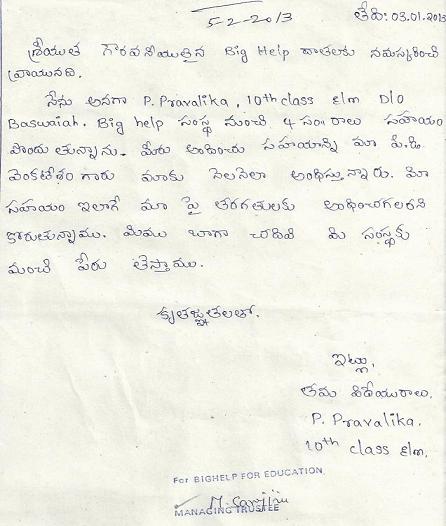 5-2-2013
తేది: 03.01.2013
శ్రీయుత గౌరవనీయుతైన Big Help దాతలకు నమస్కరించి
వ్రాయునది.
నేను అనగా P. Pravalika, 10th class E/m D/o
Baswaiah. Big help సంస్థ నుంచి 4 సం॥రాలు సహాయం
పొందుతున్నాను. మీరు అందించు సహాయాన్ని మా పి.డి
వెంకటేశం గారు మాకు నెలనెలా అందిస్తున్నారు. మీ
సహాయం ఇలాగే మా పై తరగతులకు అందించగలరని
కోరుతున్నాము. మేము బాగా చదివి మీ సంస్థకు
మంచి పేరు తెస్తాము.
కృతజ్ఞతలతో.
ఇట్లు,
తమ విధేయురాలు.
P. Pravalika.
10th class E/m.
For BIGHELP FOR EDUCATION,
MANAGING TRUSTEE